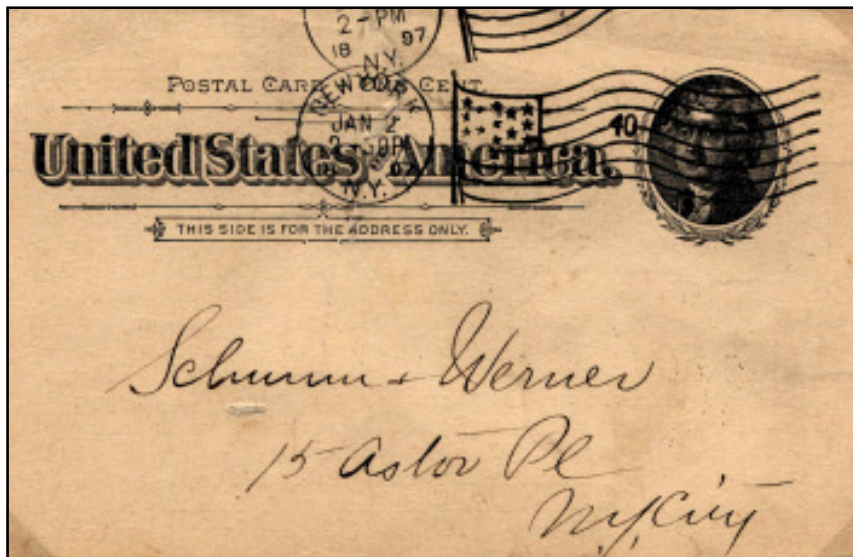 2-PM
18 97
N.Y.
POSTAL CARD ONE CENT.
NEW YORK
JAN 2
2-30P
N.Y.
40
United States America.
THIS SIDE IS FOR THE ADDRESS ONLY.
Schumm + Werner
15 Astor Pl
N.Y. City